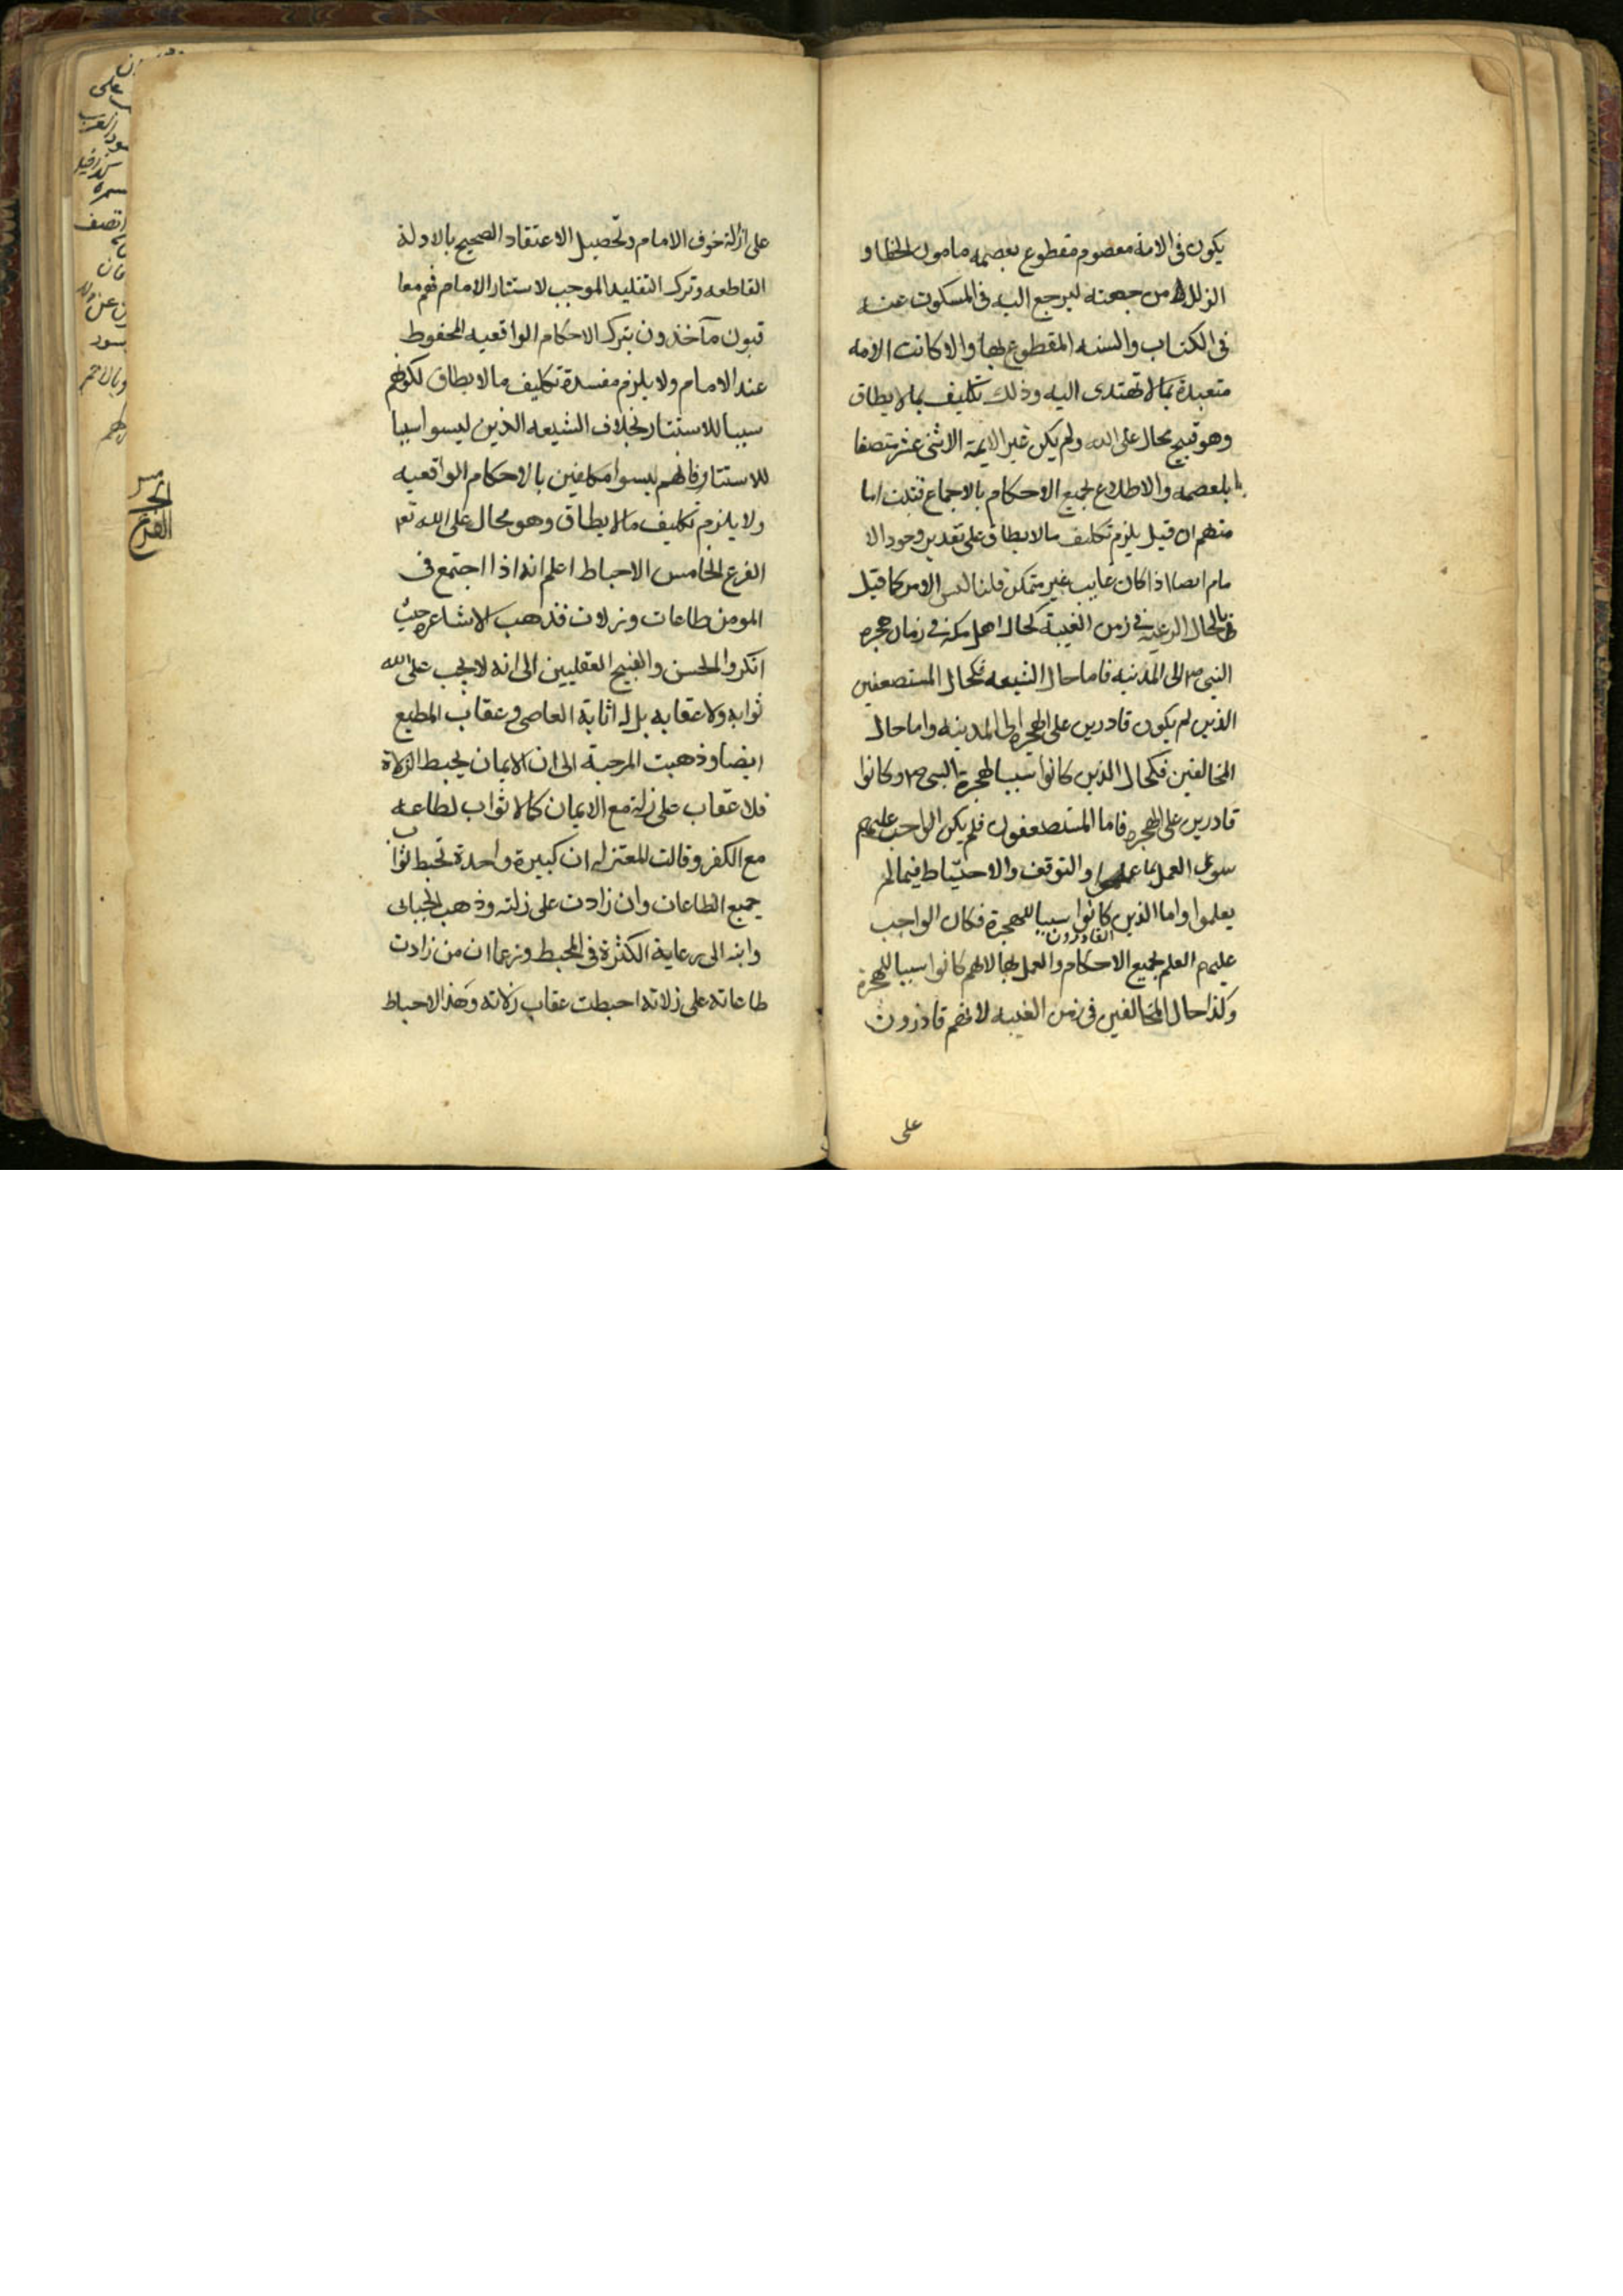 يكون فى الامة معصوم مقطوع بعصمه مامون الخطا و
الزلل من جهته ليرجع اليه فى المسكوت عنه
فى الكتاب والسنه المقطوع بها والا كانت الامه
متعبدة بما لا تهتدى اليه وذلك تكليف بما لا يطاق
وهو قبيح محال على الله ولم يكن غير الايمة الاثنى عشر متصفا
بالعصمه والاطلاع لجميع الاحكام بالاجماع فثبت انها
منهم ان قيل يلزم تكليف ما لا يطاق على تقدير وجود الا
مام ايضا اذا كان غايب غير متمكن قلنا ليس الامر كما قيل
فالحال الرعيه فى زمن الغيبة كحال اهل مكة فى زمان هجره
النبى ص الى المدينه فاما حال الشيعه فكحال المستضعفين
الذين لم يكون قادرين على الهجره الى المدينه واما حال
المخالفين فكحال الذين كانوا سببا لهجرة النبى ص وكانوا
قادرين على الهجره فاما المستضعفون فلم يكن الواجب عليهم
سوى العمل بما علموا والتوقف والاحتياط فيما لم
يعلموا واما الذين كانوا سببا للهجرة فكان الواجب
القادرون
عليهم العلم لجميع الاحكام والعمل بها لانهم كانوا سببا للهجرة
وكذا حال المخالفين فى زمن الغيبه لانهم قادرون
على
على ازالة خوف الامام وتحصيل الاعتقاد الصحيح بالادلة
القاطعه وترك التقليد الموجب لاستتار الامام فهم معا
قبون مآخذون بترك الاحكام الواقعيه المحفوظ
عند الامام ولا يلزم مفسدة تكليف ما لا يطاق لكونهم
سببا للاستتار بخلاف الشيعه الذين ليسوا سببا
للاستتار فانهم ليسوا مكلفين بالاحكام الواقعيه
ولا يلزم تكليف ما لا يطاق وهو محال على الله تعم
الفرع الخامس الاحباط اعلم انه اذا اجتمع فى
المومن طاعات وزلات فذهب الاشاعره حيث
انكروا الحسن والقبيح العقليين الى انه لا يجب على الله
ثوابه ولا عقابه بل له اثابة العاصى وعقاب المطيع
ايضا وذهبت المرجبة الى ان الايمان يحبط الزلاة
فلا عقاب على زلة مع الايمان كما لا ثواب لطاعه
مع الكفر وقالت المعتزله ان كبيرة واحدة تحبط ثواب
جميع الطاعات وان زادت على زلته وذهب الجبائى
وابنه الى رعاية الكثرة فى المحبط وزعما ان من زادت
طاعاته على زلاته احبطت عقاب زلاته وهذا الاحباط
الفرع